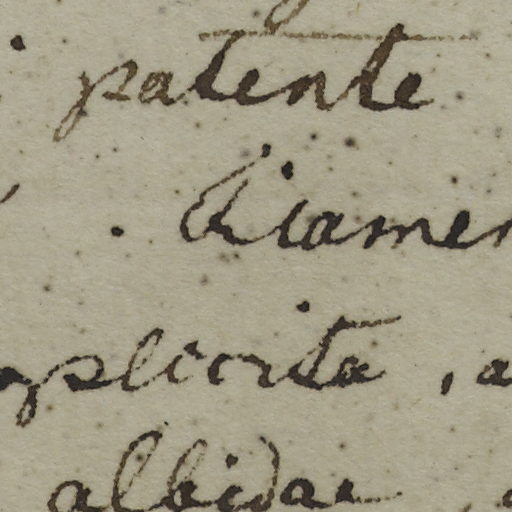 patente
. Liamen
plicita, a
albidae